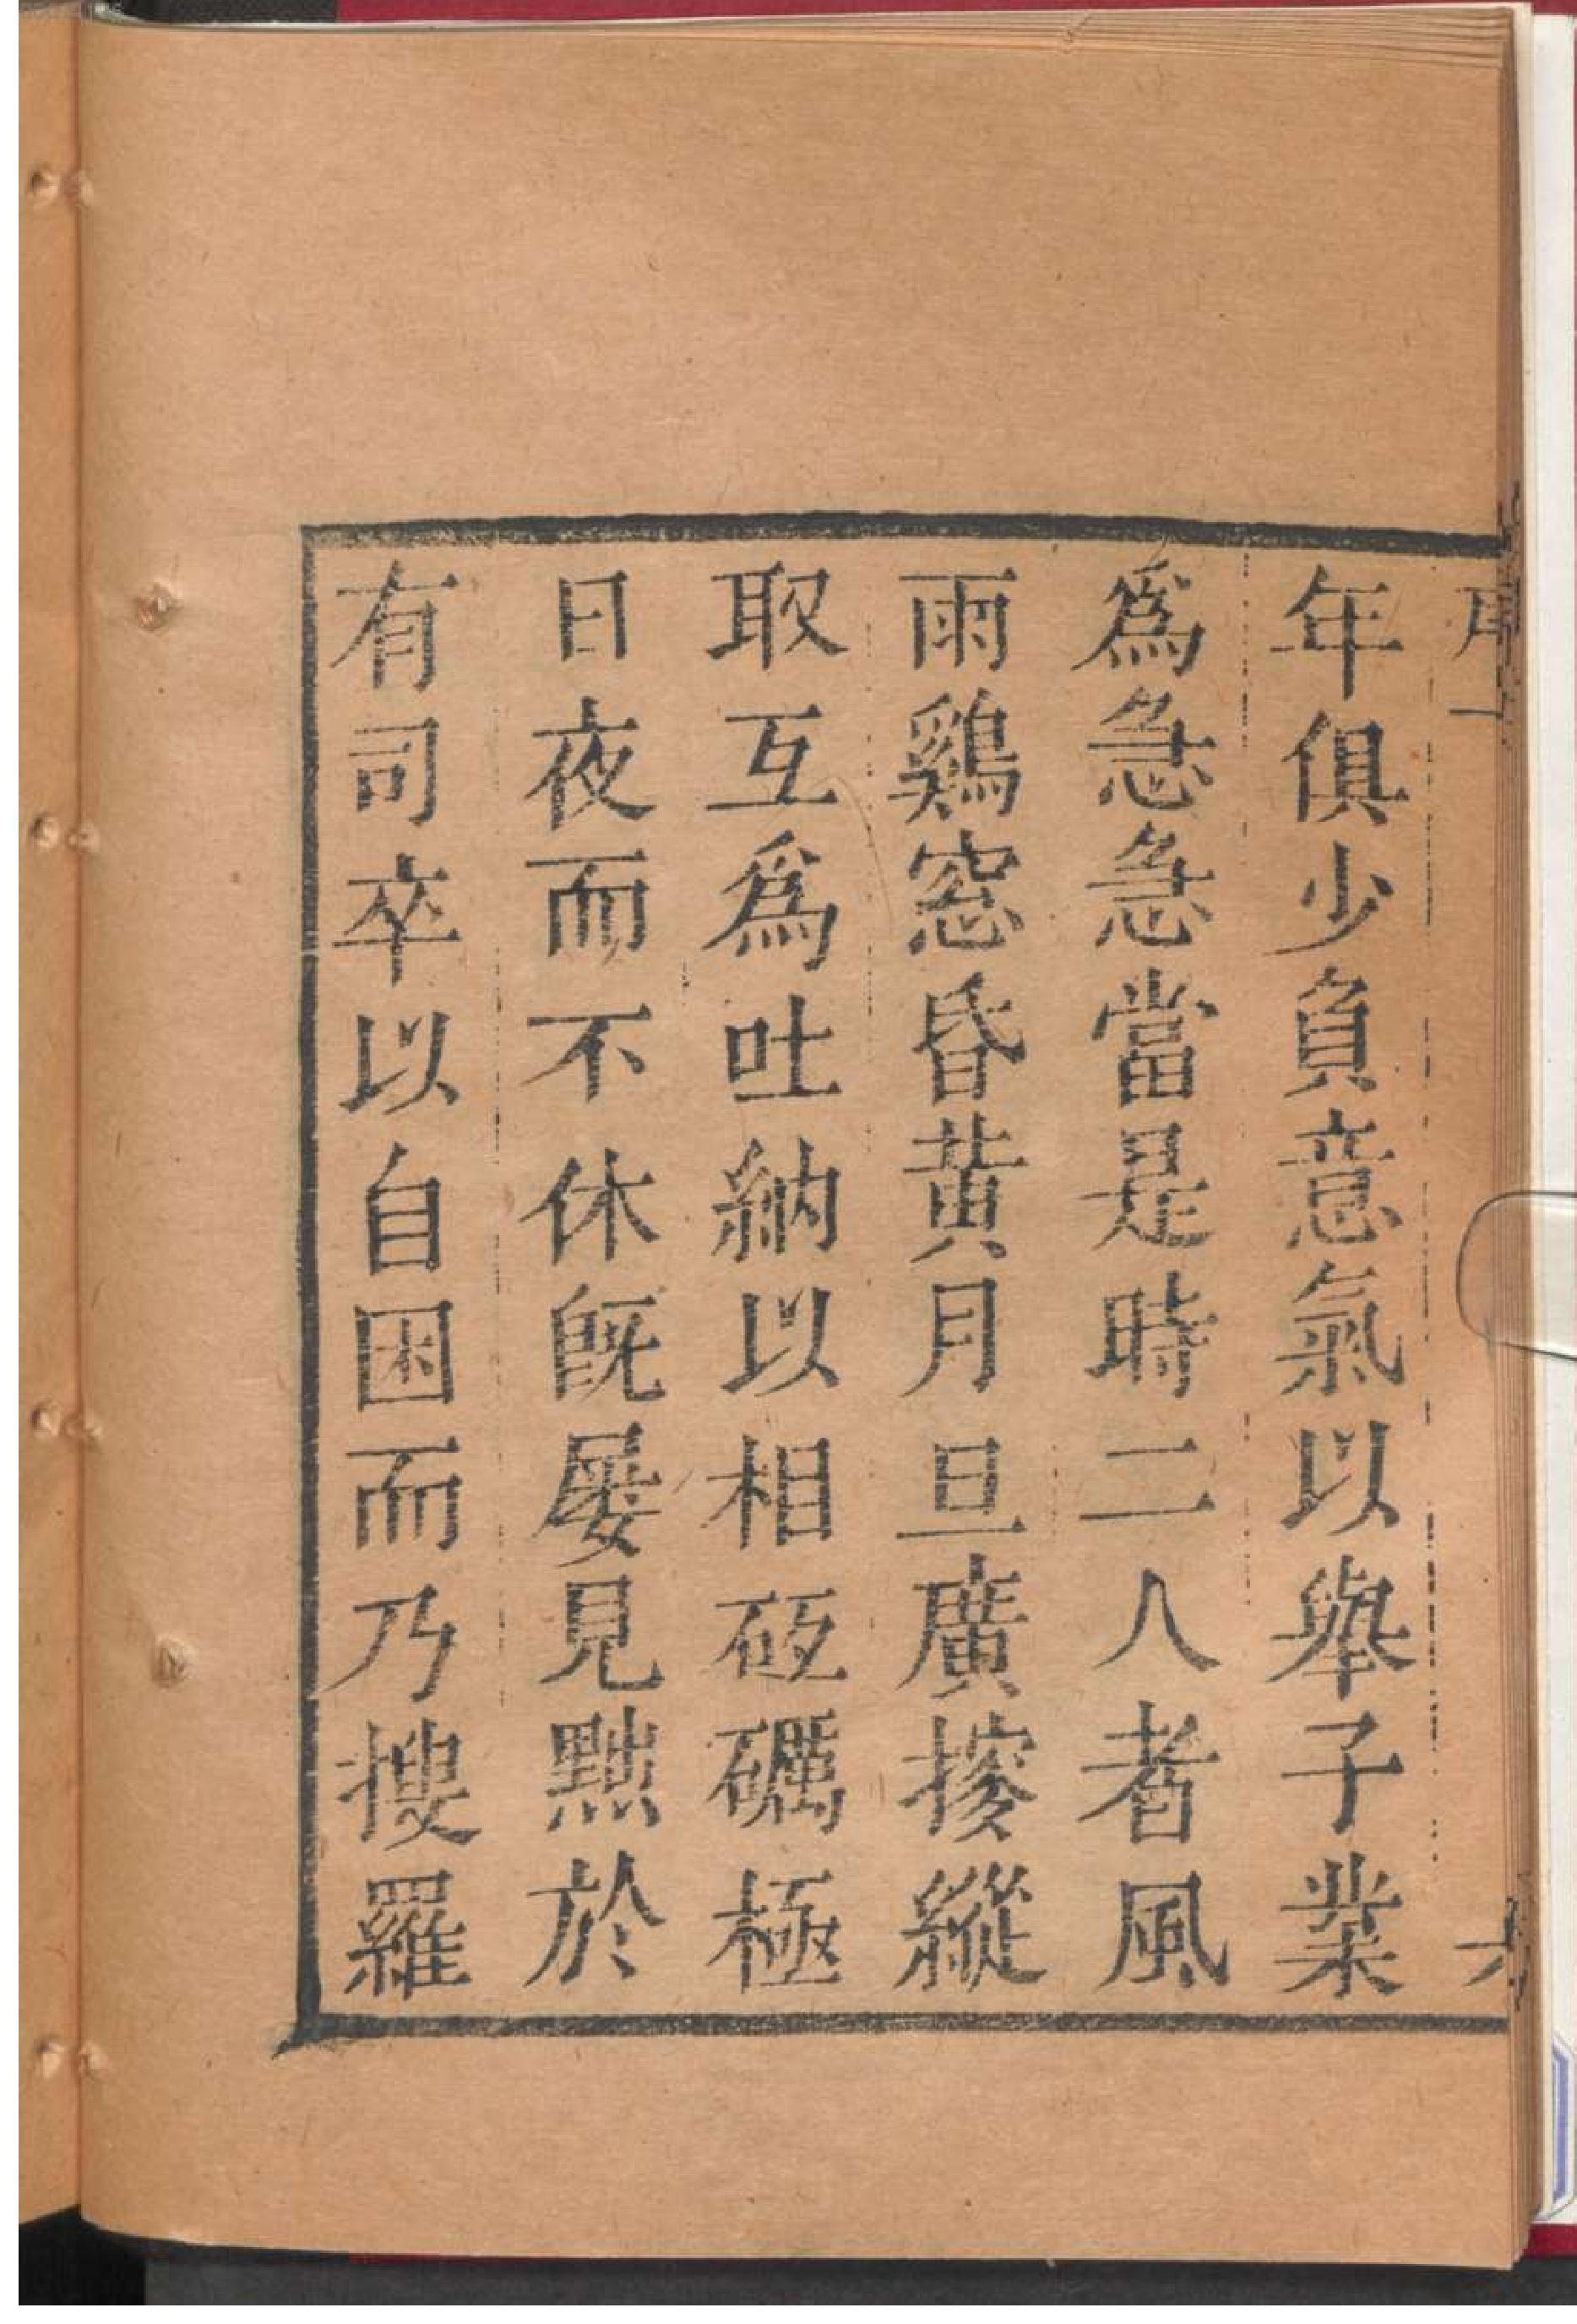 年俱少負意氣以舉子業
爲急急當是時二人者風
雨鷄窓昏黃月旦廣摉縱
取互爲吐納以相砥礪極
日夜而不休旣屡見黜於
有司卒以自困而乃搜羅